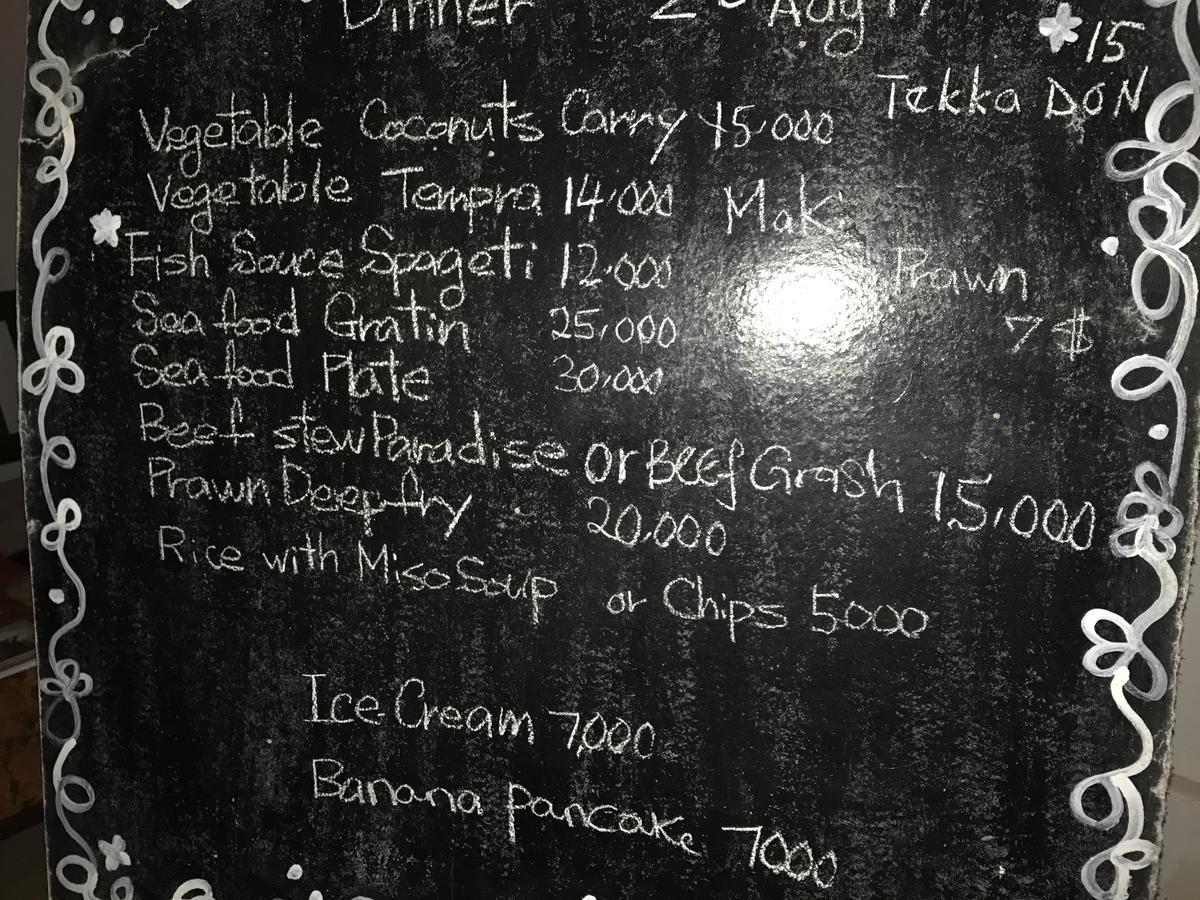 Dinner 2nd Aug 17
15
Tekka DON
Vegetable Coconuts Carry 15,000
Vegetable Tempra 14,000
Fish Sauce Spageti 12,000
Sea food Gratin 25,000
Sea food Plate 30,000
Mak
Prawn
7 $
Beef stew Paradise or Beef Grash 15,000
Prawn Deep fry 20,000
Rice with Miso Soup or Chips 5000
Ice Cream 7,000
Banana pancake 7000